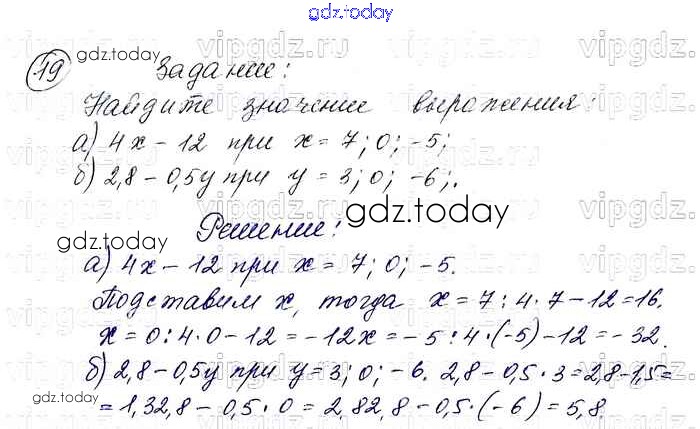 gdz.today
19 Задание:
Найдите значение выражения:
а) 4x - 12 при x = 7; 0; -5;
б) 2,8 - 0,5y при y = 3; 0; -6;.
gdz.today
gdz.today Решение:
а) 4x - 12 при x = 7; 0; -5.
Подставим x, тогда x = 7 : 4 · 7 - 12 = 16.
x = 0 : 4 · 0 - 12 = -12x = -5 : 4 · (-5) - 12 = -32.
б) 2,8 - 0,5y при y = 3; 0; -6. 2,8 - 0,5 · 3 = 2,8 - 1,5 =
= 1,32,8 - 0,5 · 0 = 2,82,8 - 0,5 · (-6) = 5,8.
gdz.today
gdz.today